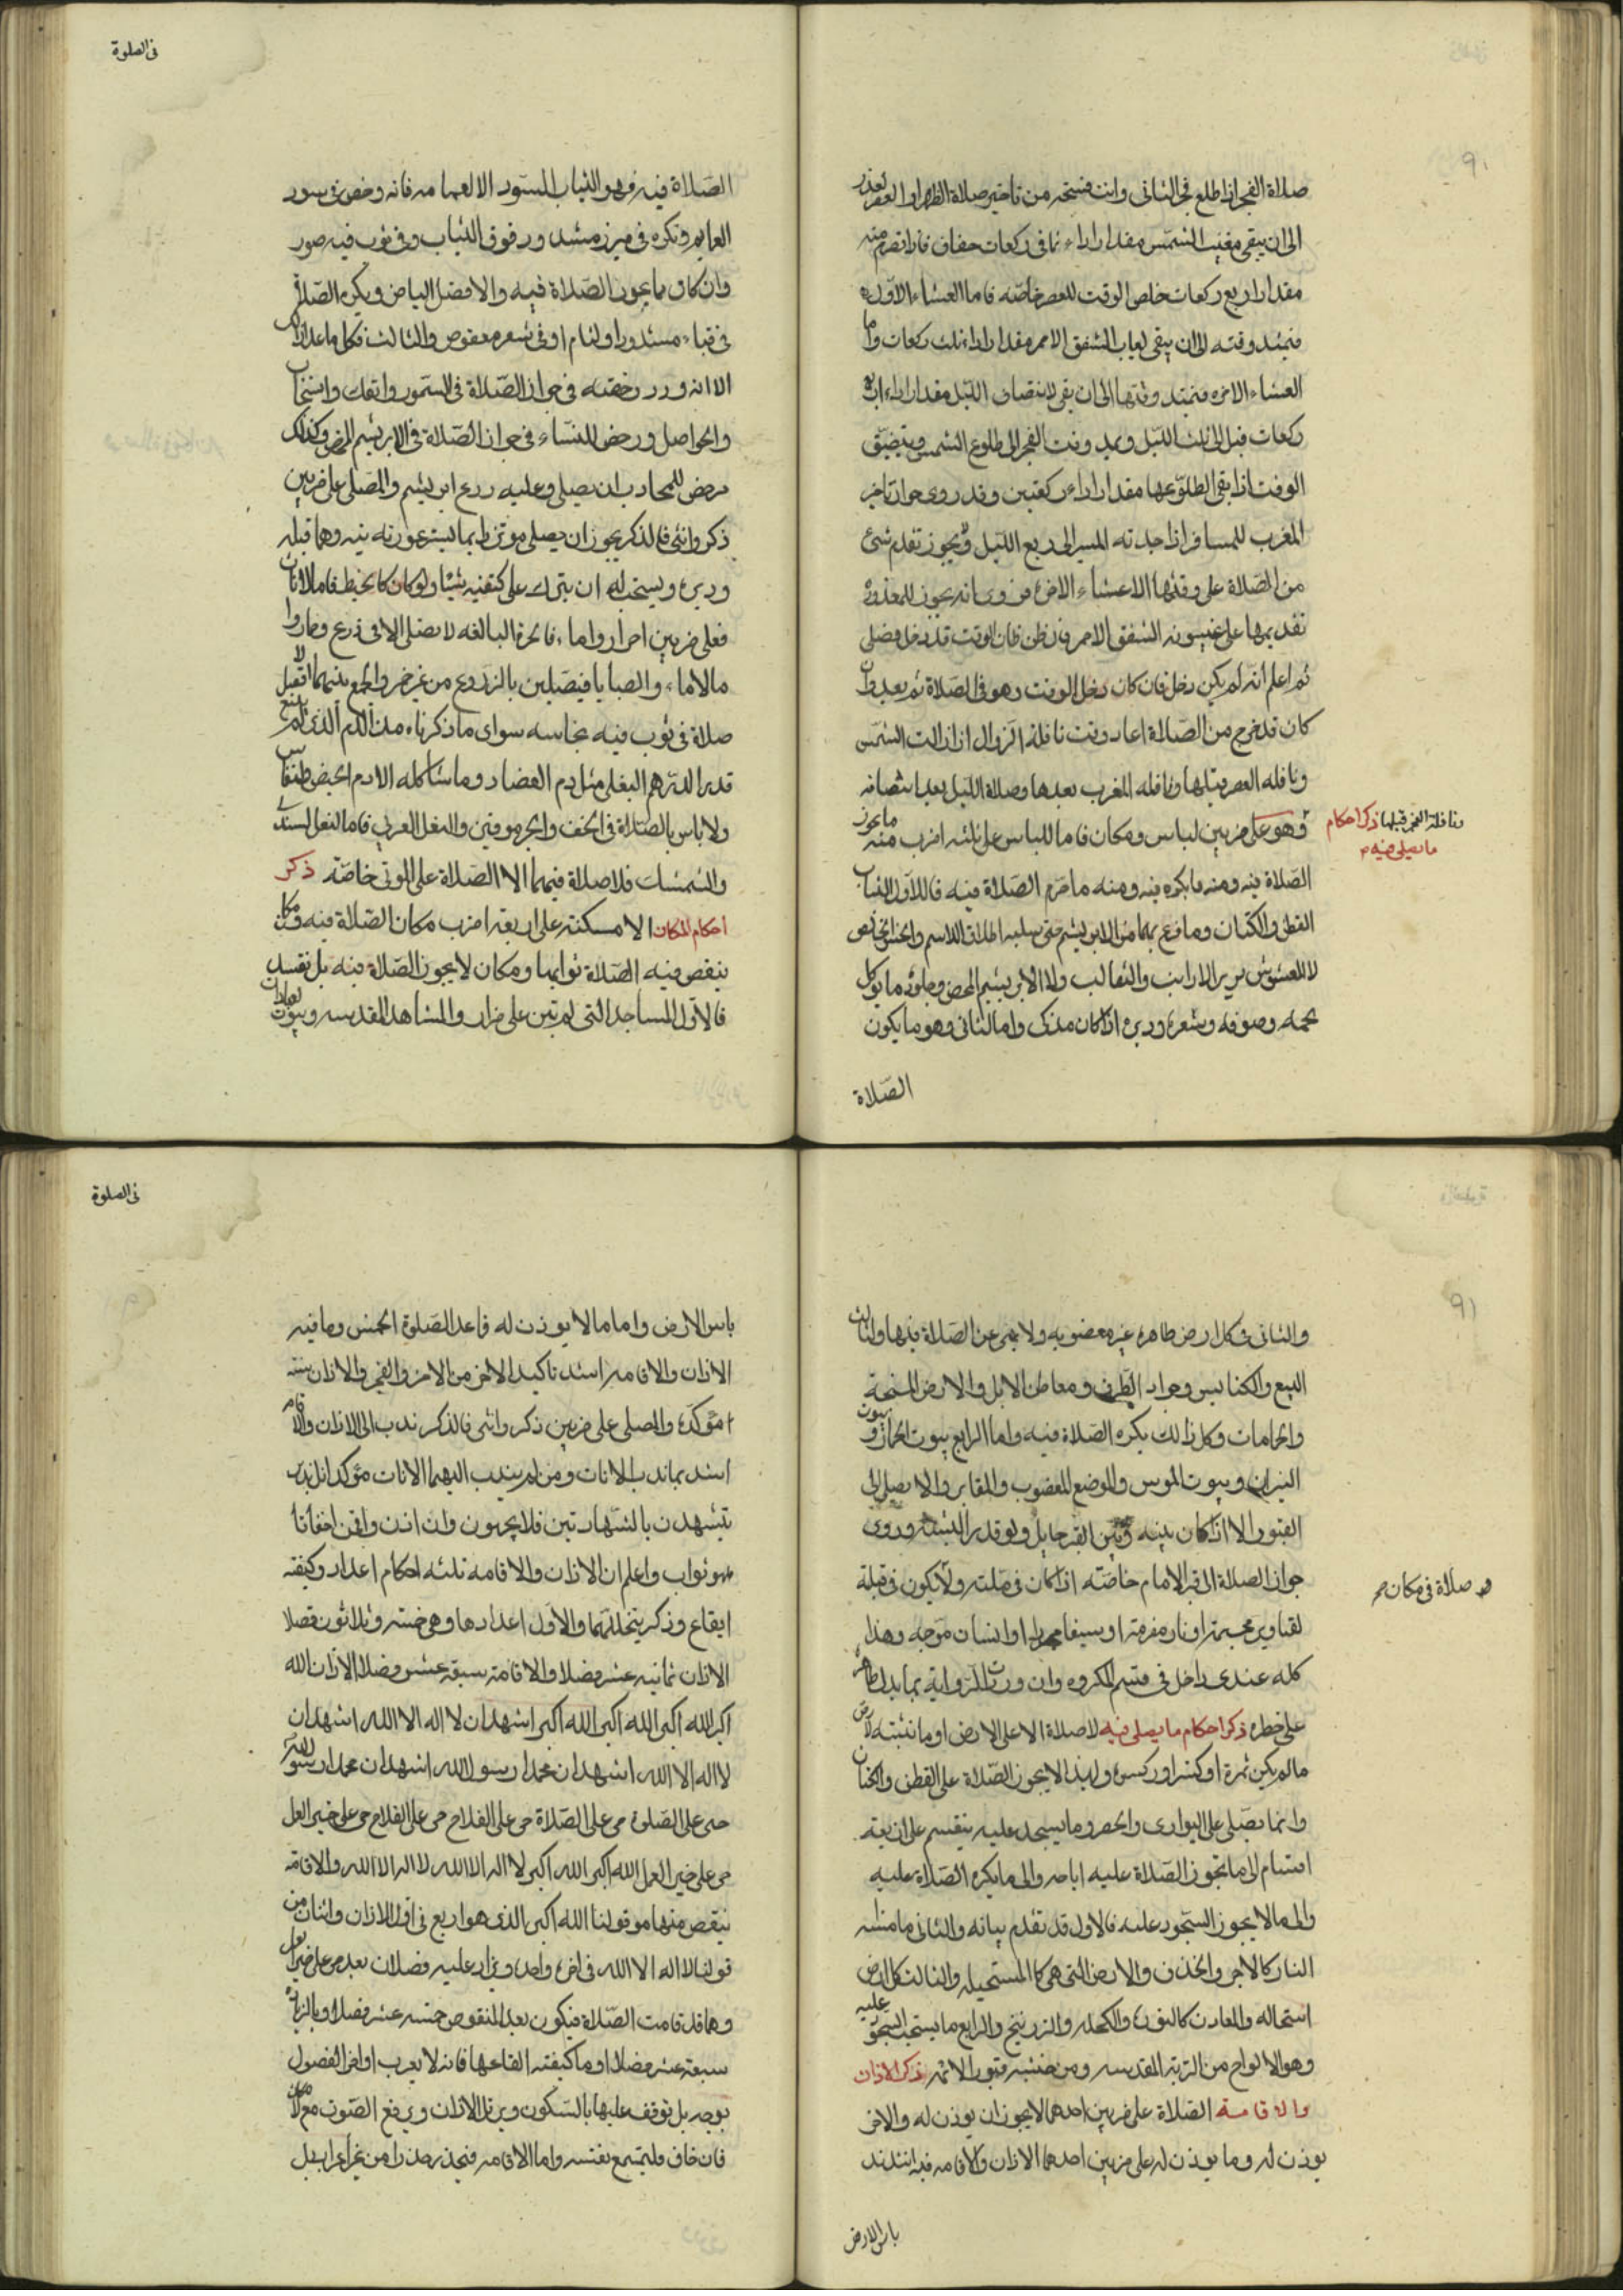 صلاة الفجر اذا طلع فجر الثانى وانت فسخه من تاخير صلاة الظهر او العصر لعذر
الى ان يبقى مغيب الشمس مقدار اداء ثمانى ركعات خفاف فاذا تصرم منه
مقدار اربع ركعات خلص الوقت للعصر خاصه فاما العشاء الاوله
فيمتد وقته الى ان يبقى لغياب الشفق الاحمر مقدار اداء ثلث ركعات واما
العشاء الاخره فيمتد وقتها الى ان يبقى لانتصاف الليل مقدار اداء اربع
ركعات قبل الى ثلث الليل ويمد وقت الفجر الى طلوع الشمس ويتضيق
الوقت اذا بقى الطلوعها مقدار اداء ركعتين وقد روى جواز تاخير
المغرب للمسافر اذا جد به المسير الى ربع الليل ولا يجوز تقدم شئ
من الصلاة على وقتها الا عشاء الاخرة فروى انه يجوز للمعذور
تقديمها على غيبوبه الشفق الاحمر فان ظن فان الوقت قد دخل فصلى
ثم اعلم انه لم يكن دخل فان كان دخل الوقت وهو فى الصلاة ثم بعد وان
كان قد خرج من الصلاة اعاد وقت نافلة الزوال اذا زالت الشمس
ونافله العصر قبلها ونافله المغرب بعدها وصلاة الليل بعد انتصافه
ونافلة الفجر قبلها ذكر احكام
ما يصلى فيه
وهو على ضربين لباس ومكان فاما اللباس على ثلثه اضرب منه ما يجوز
الصلاة فيه ومنه ما يكره فيه ومنه ما حرم الصلاة فيه فالاول الثياب
القطن والكتان وما مزج بهما من الابريشم حتى سلبه اطلاق الاسم والخز الخالص
لا المغشوش بوبر الارانب والثعالب ولا الابريشم المحض وجلود ما يوكل
لحمه وصوفه وشعره ووبره اذا كان مذكى واما الثانى وهو ما يكون
الصلاة
فى الصلوة
الصلاة فيه فهو الثياب السود الا العمامه فانه رخص فى سود
العمايم وتكره فى ميزر مشدد ورفوق الثياب وفى ثوب فيه صور
وان كان مما يجوز الصلاة فيه والافضل البياض ويكره الصلاة
فى قباء مشدود او لثام او فى شعر معقوص والثالث فكل ما عدا ذلك
الا انه ورد رخصه فى جواز الصلاة فى السمور والفنك والسنجاب
والحواصل ورخص للنساء فى جواز الصلاة فى الابريشم المحض وكذلك
رخص للمحارب ان يصلى وعليه درع ابريشم والمصلى على ضربين
ذكر وانثى فالذكر يجوز ان يصلى موتزرا بما يستر عورته فيه وهما قبله
ودبره ويستحب له ان يترك على كتفيه شيئا ولو كان كالخيط فاما الاناث
فعلى ضربين احرار واماء فالحرة البالغه لا تصلى الا فى درع وخمار واما
مالاماء والصبايا فيصلين بالدروع من غير خمر والجمع بينهما لا تقبل
صلاة فى ثوب فيه نجاسه سواى ما ذكرناه من الدم الذى لم يبلغ
قدر الدرهم البغلى مثل دم الفصاد وما شاكله الا دم الحيض والنفاس
ولا باس بالصلاة فى الخف والجرموقين والنعل العربى فاما النعل السندى
والشمشك فلا صلاة فيهما الا الصلاة على الموتى خاصة ذكر
احكام المكان الامسكنه على اربعه اضرب مكان الصلاة فيه ومكان
ينقص فيه الصلاة ثوابها ومكان لا يجوز الصلاة فيه بل تفسد
فالاول المساجد التى لم تبن على ضرار والمشاهد المقدسه وبيوت العبادات
والثانى فى كل ارض طاهرة غير مغصوبه ولا نهى عن الصلاة فيها والثالث
البيع والكنايس وجواد الطرق ومعاطن الابل والارض السبخة
والحامات وكل ذالك يكره الصلاة فيه واما الرابع بيوت الخمار وبيوت
النيران وبيوت المجوس والموضع المغصوب والمقابر والا يصلى الى
القبور الا اذا كان بينه وبين القبر حايل ولو قدر اللبنه وروى
جواز الصلاة الى قبر الامام خاصه اذا كان فى قبلته ولا يكون فى قبلة
صلاة فى مكان
لتصاوير مجسمة او نار مضرمة او سيفا مجردا او انسان مواجه وهذا
كله عندى داخل فى قسم المكروه وان وردت الرواية بما يدل ظاهره
على خطره ذكر احكام ما يصلى فيه لا صلاة الا على الارض او ما تنبته الارض
مالم يكن ثمرة او كثر او كسوة ولهذا لا يجوز الصلاة على القطن والكتان
وانما يصلى على البوارى والحصر وما يسجد عليه ينقسم على اربعة
اقسام الى ما تجوز الصلاة عليه اباحه والى ما يكره الصلاة عليه
والى ما لا يجوز السجود عليه فالاول قد تقدم بيانه والثانى ما مسته
النار كالاجر والخذف والارض التى هى كالمستحيله والثالث كل ارض
استحاله والمعادن كالنورة والكحله والزرنيخ والرابع ما يستحب السجود عليه
وهو الالواح من التربة المقدسه ومن خشب قبور الائمه ذكر الاذان
والاقامة الصلاة على ضربين احدهما لا يجوز ان يوذن له والاخر
يوذن له وما يوذن له على ضربين احدهما الاذان والاقامه فيه اشد ند
باس الارض
فى الصلوة
باس الارض واما ما لا يوذن له فاعد الصلوة الخمس وما فيه
الاذان والاقامه اشد تاكيد الاخر من الامر والفجر والاذان سنه
موكدة والمصلى على ضربين ذكر وانثى فالذكر ندب الى الاذان والاقامه
اشد بما ندب الاناث ومن لم يندب اليهما الاناث موكدا بل ندبن
يتشهدن بالشهادتين فلا يجهرن وان اذن واقمن اخفاتا
فهو ثواب واعلم ان الاذان والاقامه ثلثه احكام اعداد وكيفية
ايقاع وذكر يتخللهما والاول اعدادها وهى خمسه وثلاثون فصلا
الاذان ثمانيه عشر فصلا والاقامة سبعة عشر فصلا الاذان الله
اكبر الله اكبر الله اكبر الله اكبر اشهد ان لا اله الا الله اشهد ان
لا اله الا الله اشهد ان محمدا رسول الله اشهد ان محمدا رسول الله
حى على الصلوة حى على الصلاة حى على الفلاح حى على الفلاح حى على خير العمل
حى على خير العمل الله اكبر الله اكبر لا اله الا الله لا اله الا الله والاقامة
ينقص منها موقولنا الله اكبر الذى هو اربع فى اول الاذان واثنان من
قولنا لا اله الا الله فى اخره واحد ويزاد عليه فصلان بعد حى على خير العمل
وهما قد قامت الصلاة فيكون بعد المنقوص خمسه عشر فصلا وبالزيادة
سبعة عشر فصلا واما كيفيته ايقاعها فانه لا يعرب اواخر الفصول
بوجه بل توقف عليها بالسكون ويرتل الاذان ويرفع الصوت مع الامكان
فان خاف فليسمع نفسه واما الاقامه فيحذر حذرا من غير اعراب بل